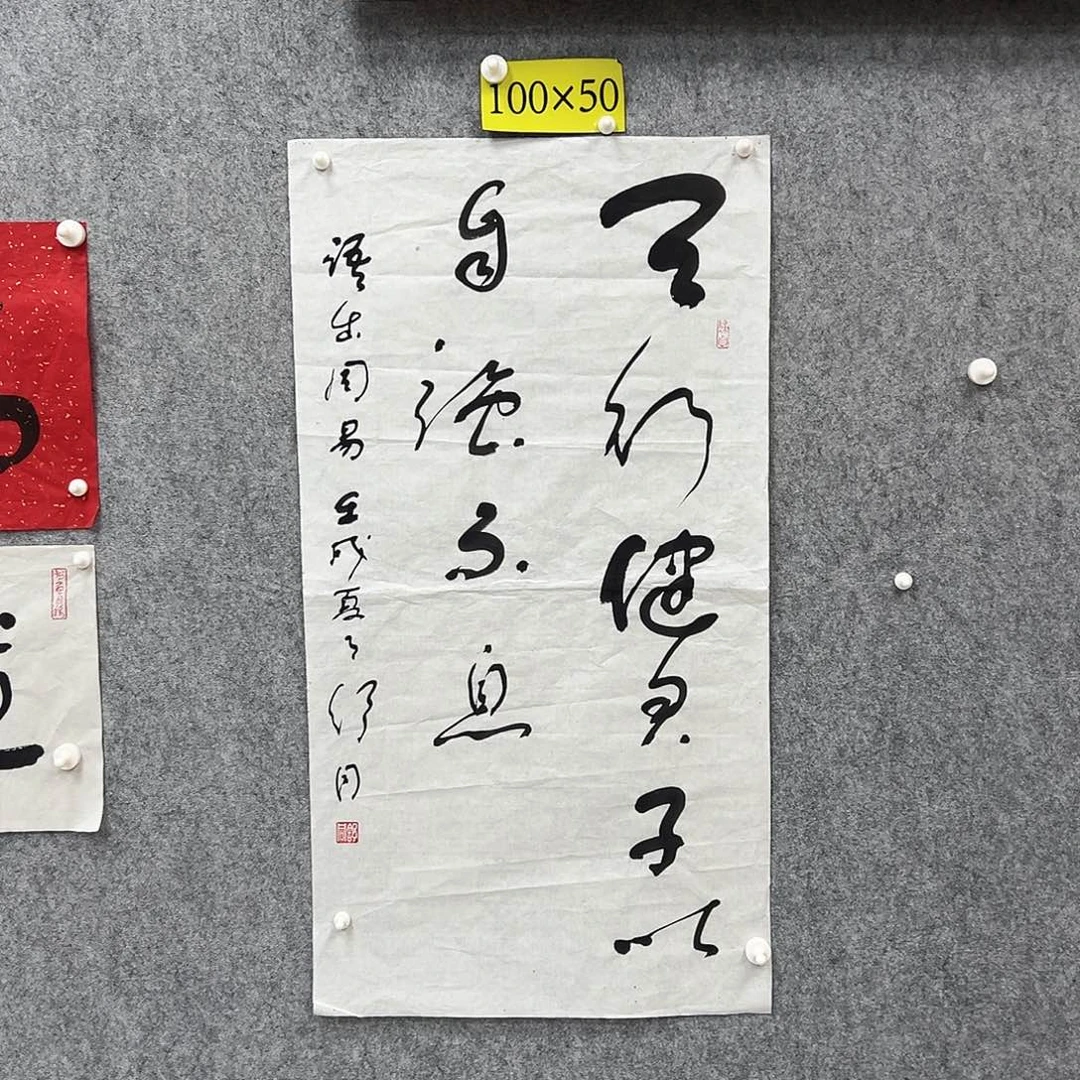 100×50
天行健君子以
自强不息
语出周易 壬戌夏了 舒同